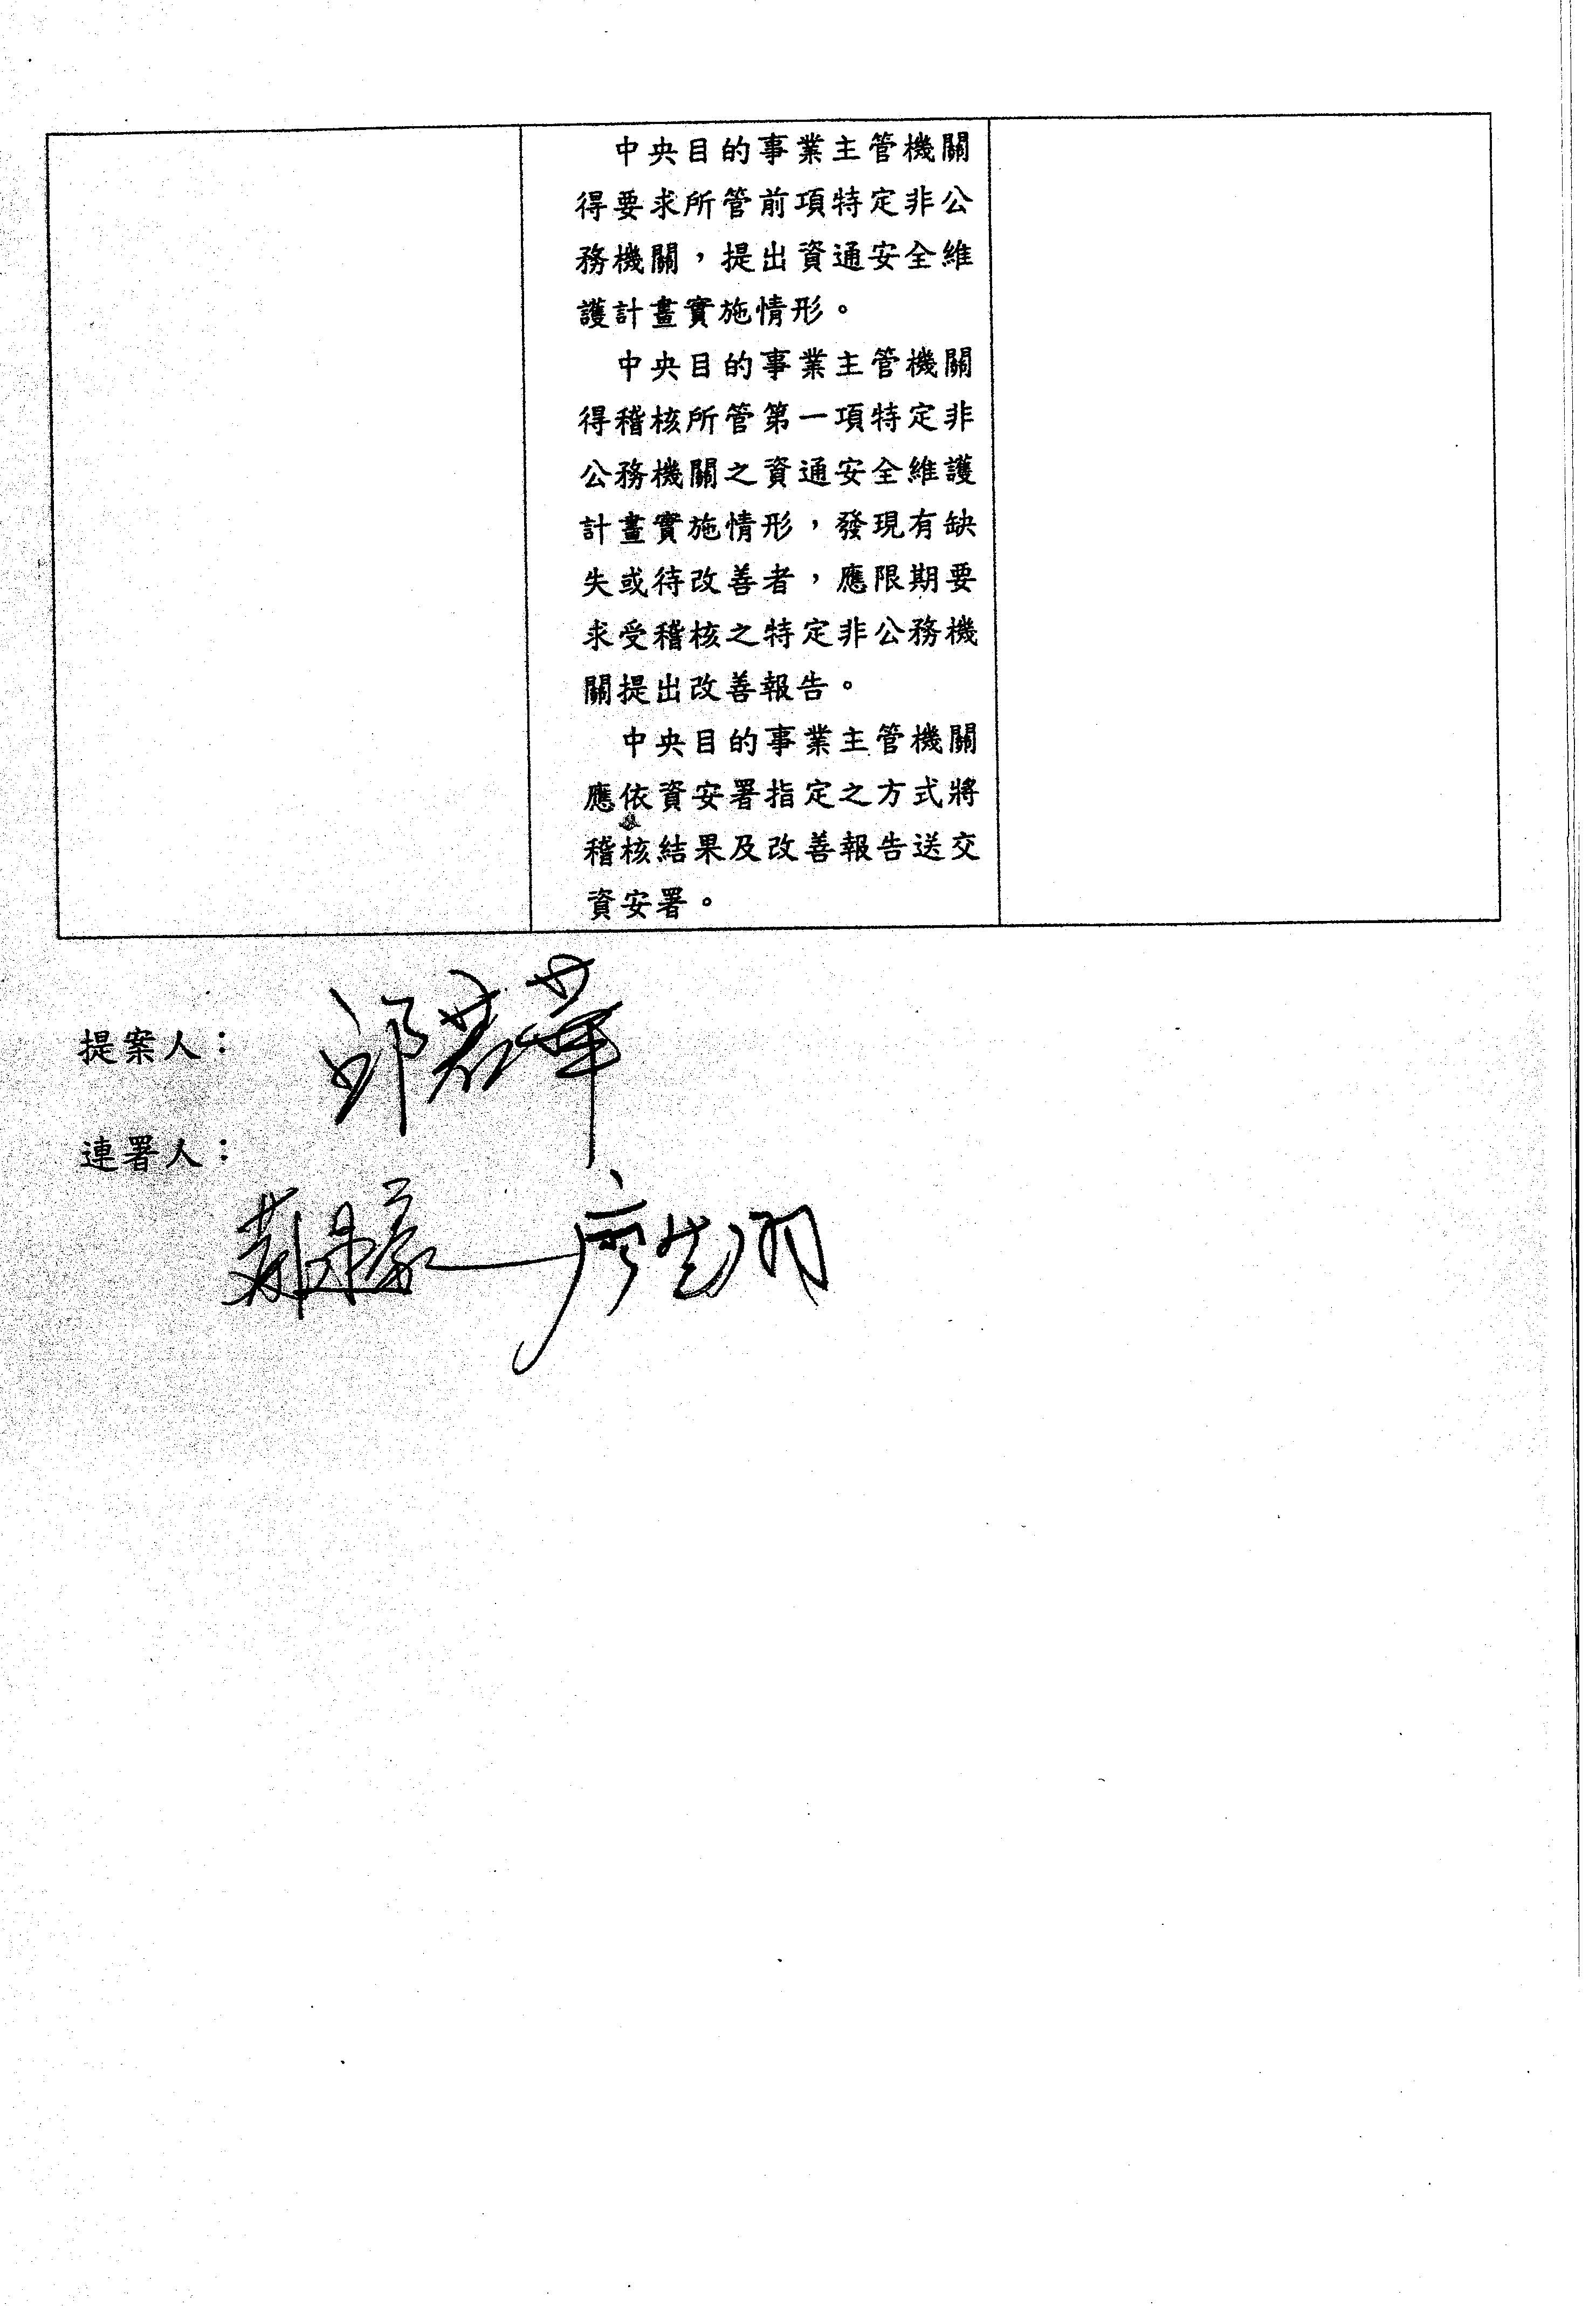 中央目的事業主管機關
得要求所管前項特定非公
務機關，提出資通安全維
護計畫實施情形。
中央目的事業主管機關
得稽核所管第一項特定非
公務機關之資通安全維護
計畫實施情形，發現有缺
失或待改善者，應限期要
求受稽核之特定非公務機
關提出改善報告。
中央目的事業主管機關
應依資安署指定之方式將
稽核結果及改善報告送交
資安署。
提案人：邱若華
連署人：
廖先翔